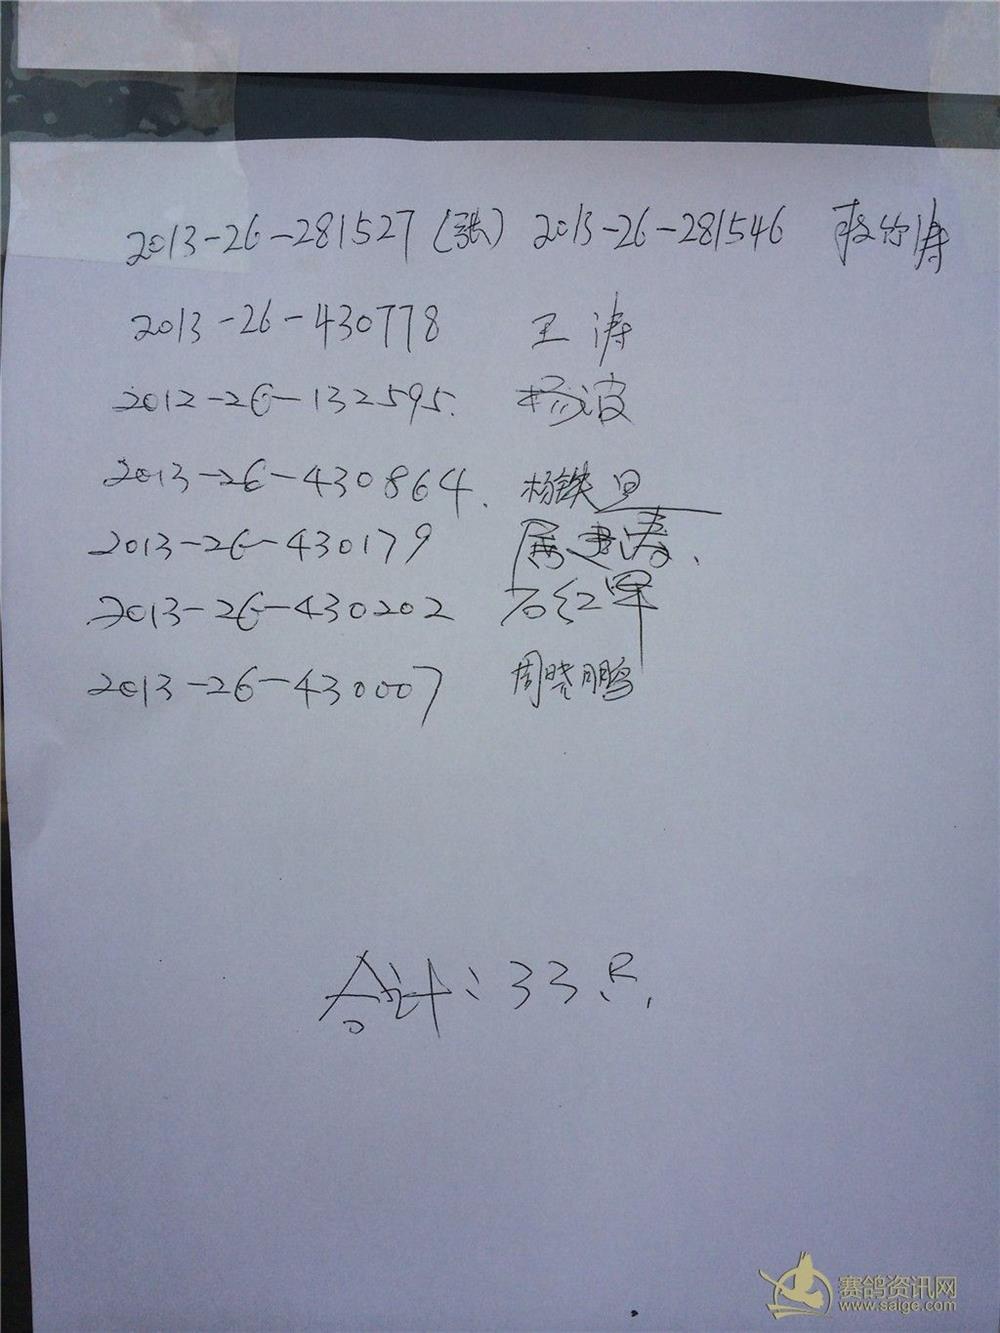 2013-26-281527 (张) 2013-26-281546 涛
2013-26-430778 王涛
2012-26-132595. 杨波
2013-26-430864. 杨铁
2013-26-430179 屈建涛.
2013-26-430202 石红军
2013-26-430007 周晓鹏
合计:33只.
赛鸽资讯网
www.saige.com